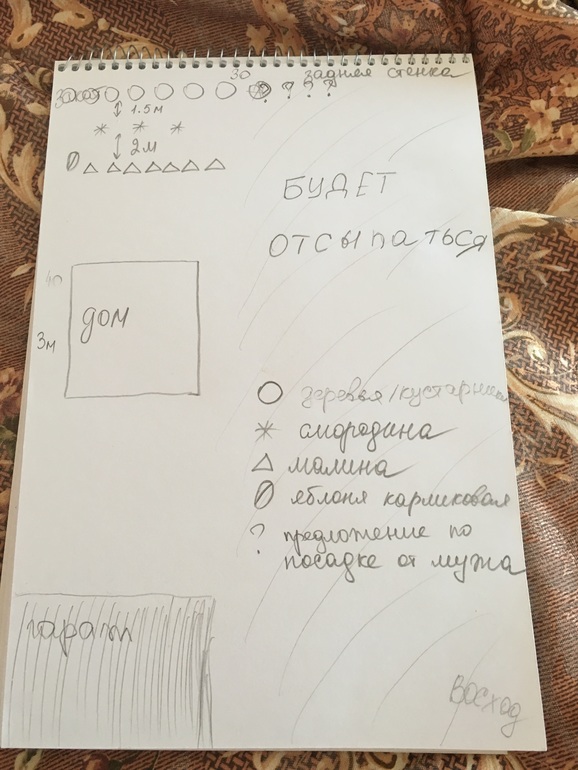 30 задняя стенка
закат
? ? ? ?
1.5м
2м
БУДЕТ
ОТСЫПАТЬСЯ
40
дом
3м
деревья/кустарники
смородина
малина
яблоня карликовая
? предложение по
посадке от мужа
гараж
Восход